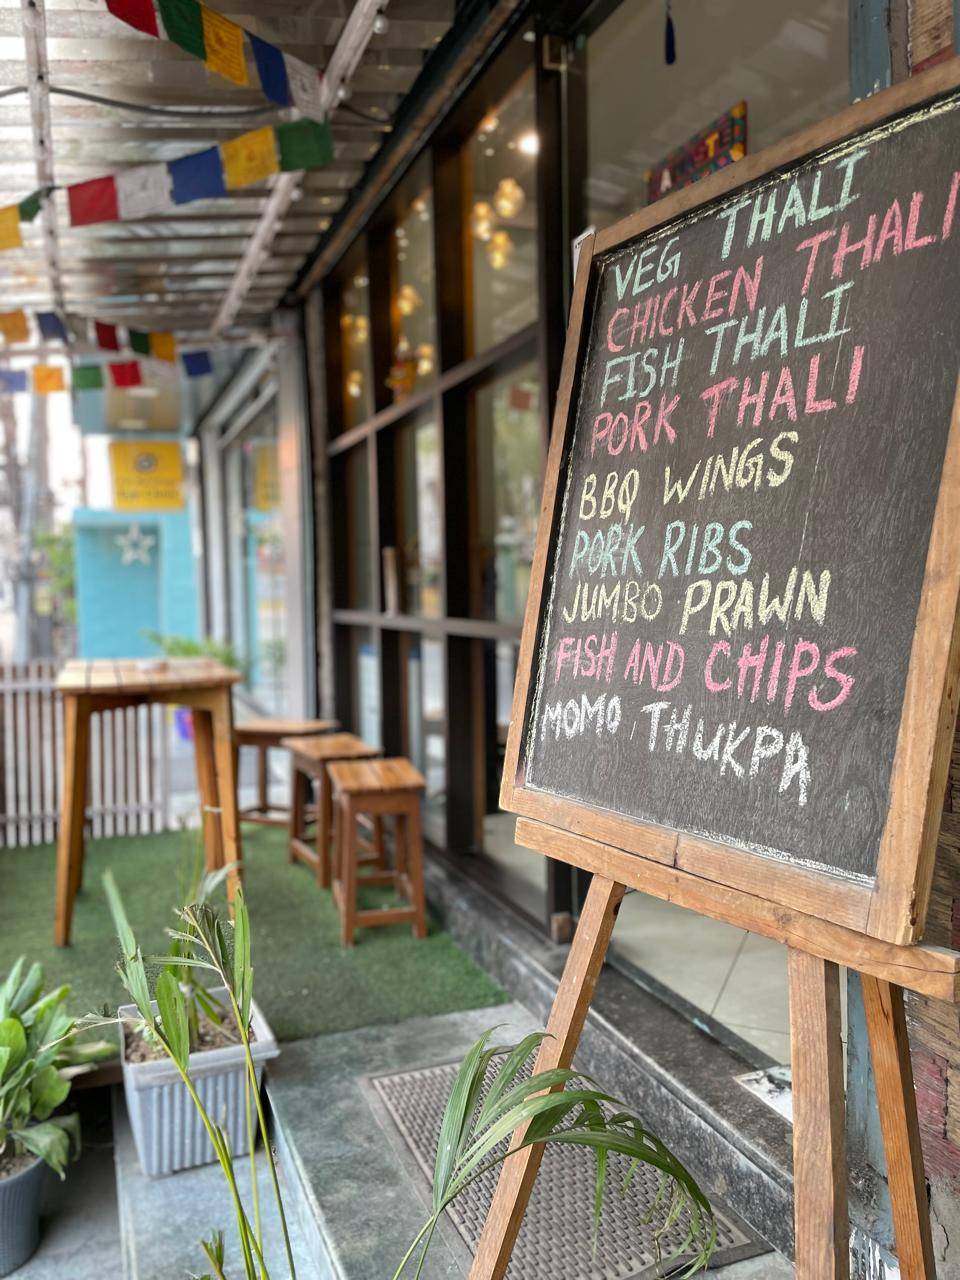 VEG THALI
CHICKEN THALI
FISH THALI
PORK THALI
BBQ WINGS
PORK RIBS
JUMBO PRAWN
FISH AND CHIPS
MOMO, THUKPA